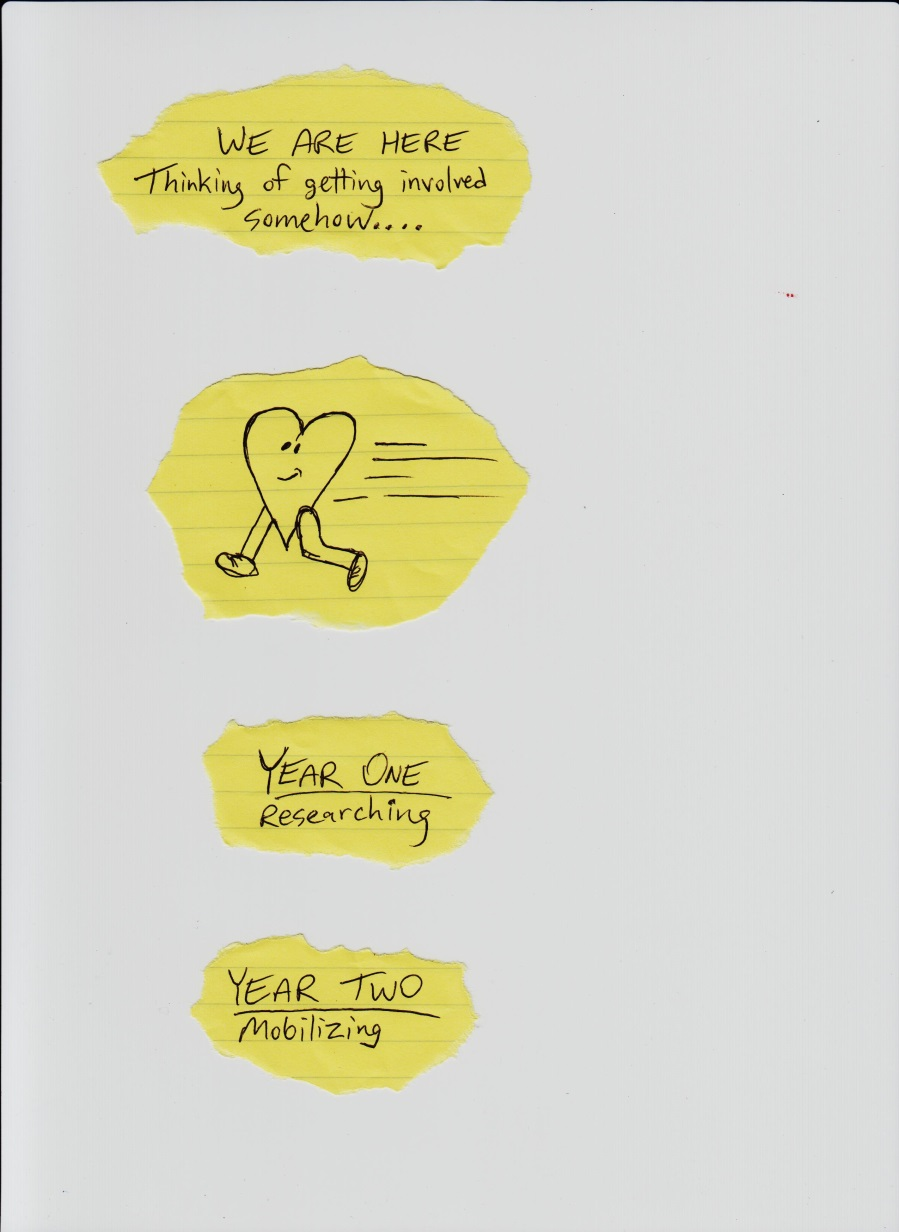 WE ARE HERE
Thinking of getting involved
somehow....
YEAR ONE
Researching
YEAR TWO
Mobilizing